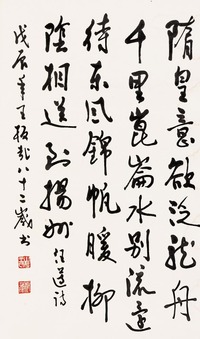 隋皇意欲泛龙舟
千里崑崙水别流还
待东风锦帆暖柳
阴相送到扬州 任道诗
戊辰年 王板哉八十二岁书